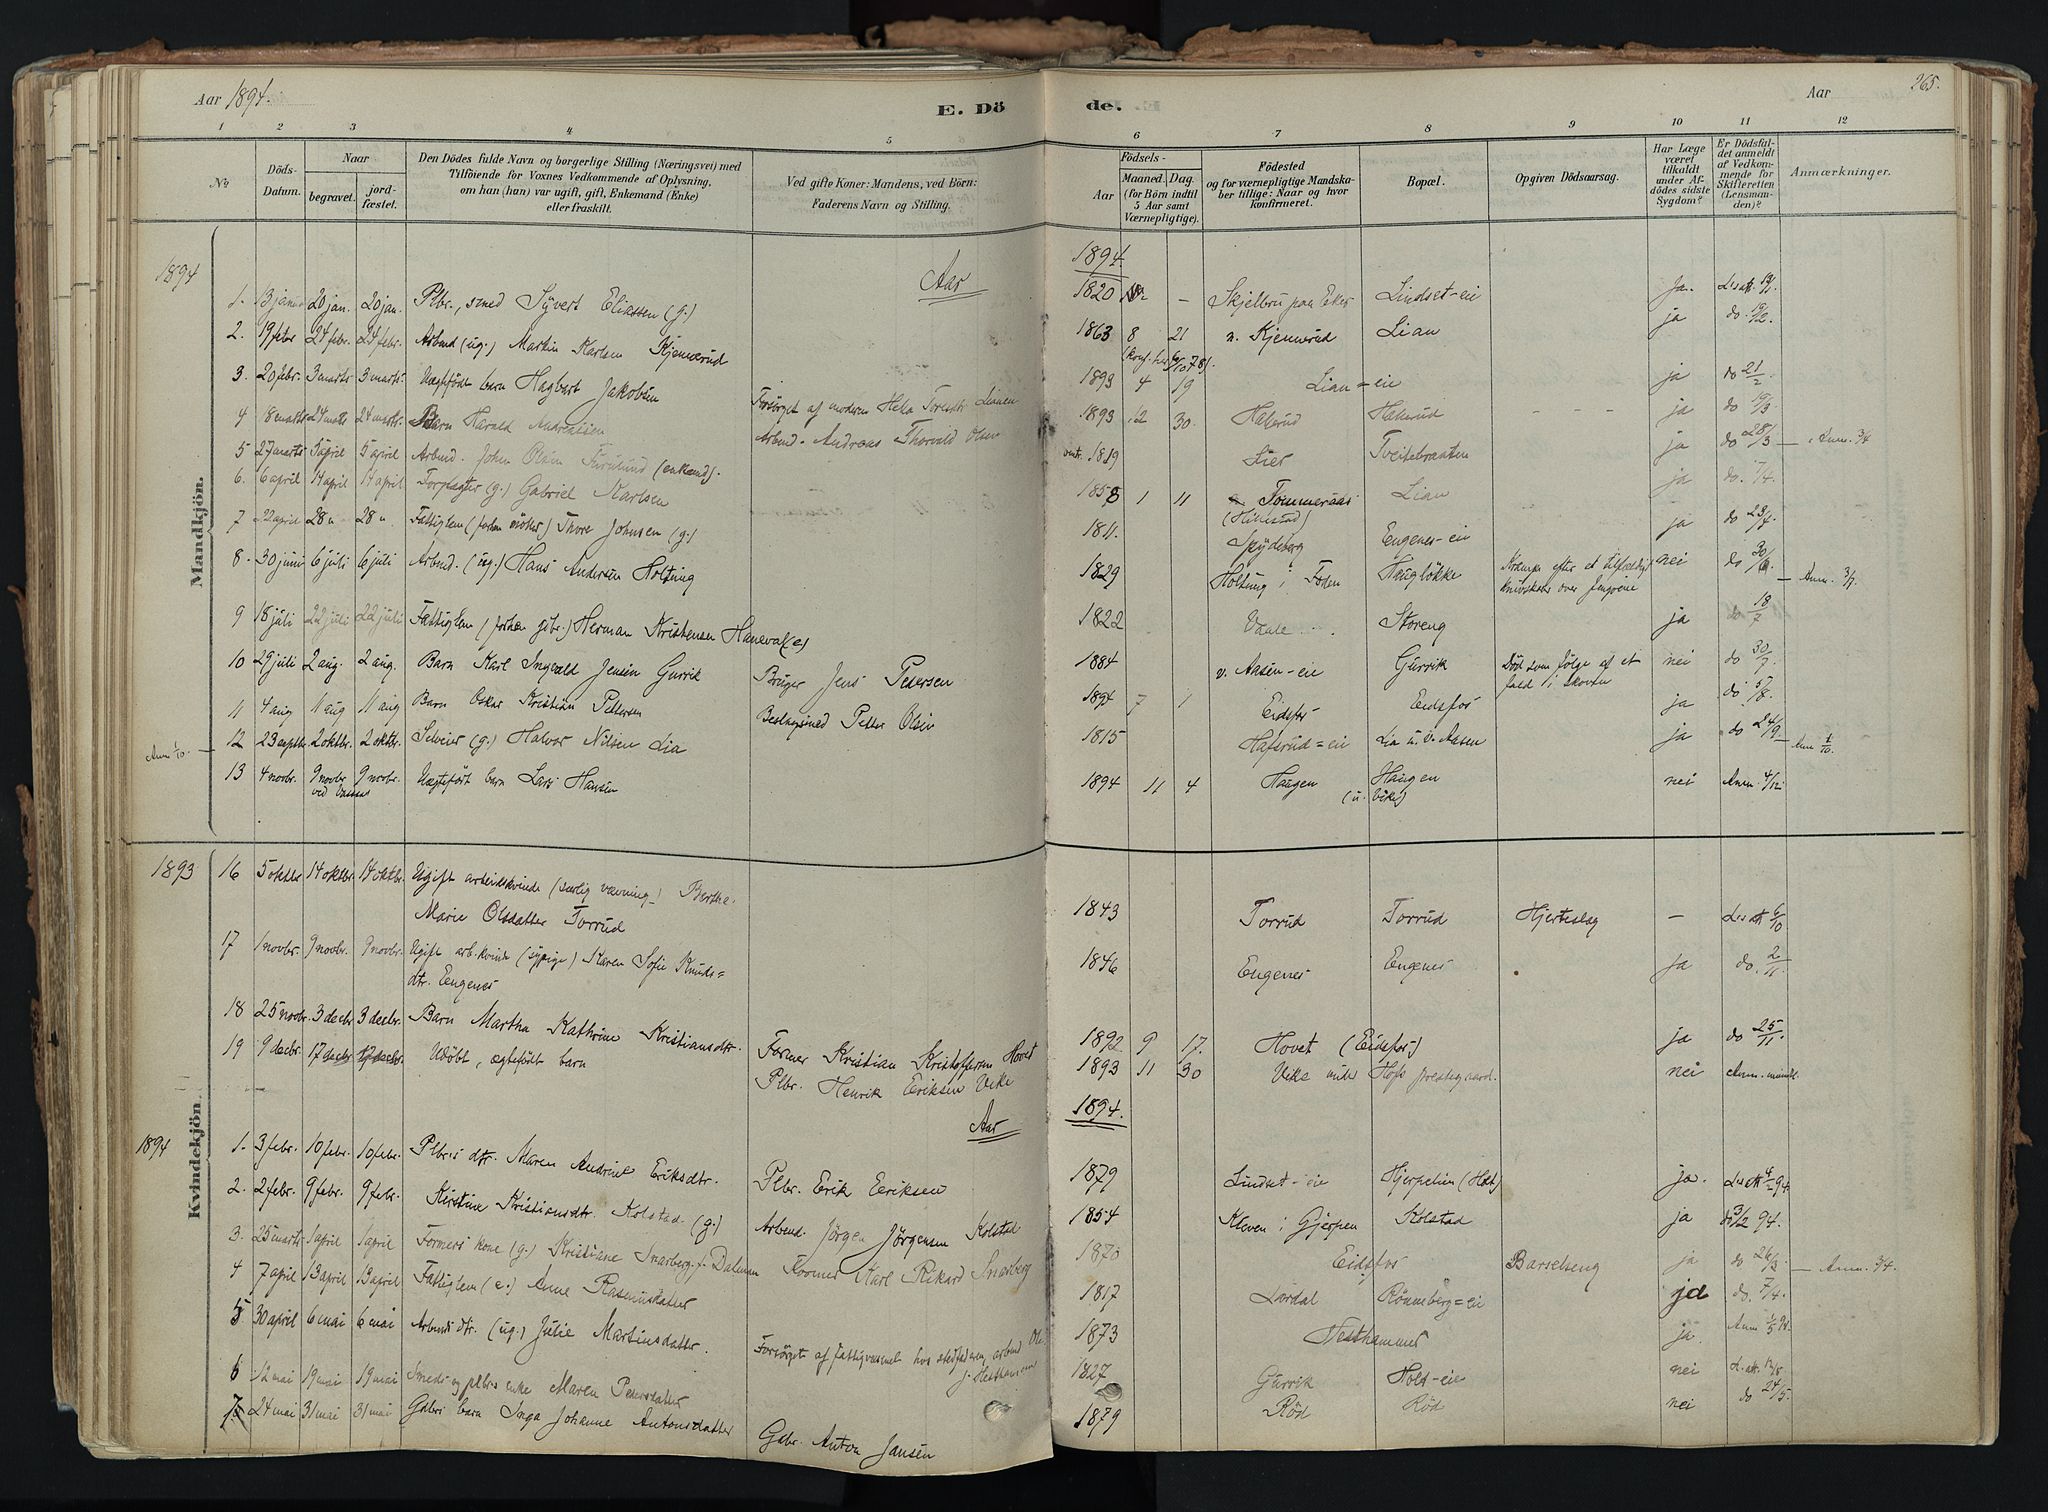 Aar 1894.
E. Dö de.
Aar
265.
1 2 3 4 5 6 7 8 9 10 11 12
No
Döds-Datum.
Naar
begravet.
jord-fæstet.
Den Dödes fulde Navn og borgerlige Stilling (Næringsvei) med
Tilföiende for Voxnes Vedkommende af Oplysning,
om han (hun) var ugift, gift, Enkemand (Enke)
eller fraskilt.
Ved gifte Koner: Mandens, ved Börn:
Faderens Navn og Stilling.
Födsels-
Aar
Maaned. Dag.
(for Börn indtil
5 Aar samt
Værnepligtige).
Födested
og for værnepligtige Mandska-
ber tillige: Naar og hvor
konfirmeret.
Bopæl.
Opgiven Dödsaarsag.
Har Læge
været
tilkaldt
under Af-
dödes sidste
Sygdom?
Er Dödsfal-
det anmeldt
af Vedkom-
mende for
Skifteretten
(Lensman-
den)?
Anmærkninger.
Mandkjön.
1894 Aar 1894
1. 13 januar 20 jan. 20 jan. Plbr., smed Syvert Eliassen (g.) 1820 - Skjelbru paa Eker Lindset-eie Ja. Lsatt. 13/1
2. 19 febr 24 febr. 24 febr. Arbmd (ug.) Martin Karlsen Kjennerud 1863 8 21 n. Kjennerud Lian ja do 19/2.
(konf. her 6/10 78).
3. 20 febr. 3 marts 3 marts Uægtefödt barn Hagbart Jakobsen Forsörget af moderen Hela Toresdtr. Lianeie 1893 4 19 Lian=eie ja do 21/2.
4 8 marts 24 marts 24 marts Barn Harald Andreassen Arbmd. Andreas Thorvald Olsen 1893 12 30. Hakerud Hakerud - - - ja do 19/3
5 27 marts 5 april 5 april Arbmd. John Olsen Furulund (enkemd). 1819 Lier Tveitebraaten ja do 28/3 - Anm. 3/4
6. 6 april 14 april 14 april Forpagter (g.) Gabriel Karlsen 1858 1 11 Tommeraas Lian ja do. 7/4.
(Hillestad)
7 22 april 28 " 28 " Fattiglem (forhen röker) Thore Johnsen (g.) 1811. Spydeberg Eugenes-eie ja do 23/4.
8. 30 juni 6 juli 6 juli Arbmd. (ug.) Hans Andersen Holtung 1829 Holtung i Foden Haugløkke Krampe efter et tilfældigt nei do 30/6 - Anm. 3/7.
knivskaar over fingrene
9 18 juli 22 juli 22 juli Fattiglem (forhen gbr.) Herman Kristensen Haneval(e) 1822 Vaale Storeng ja do 18/7
10 29 juli 2 aug. 2 aug. Barn Karl Ingvald Jensen Gurrik Bruger Jens Pedersen 1884 v. Aasen-eie Gurrik Död som fölge af et nei do 30/7.
fald i skoven
11 4 aug 11 aug 11 aug Barn Oskar Kristian Pettersen Beslagsmed Petter Olsen 1894 7 1 Eidsfos Eidsfos ja do 5/8.
Anm 1/10 - 12 23 septbr. 2 oktbr. 2 oktbr. Selveier (g.) Halvor Nilsen Lia 1815 Hafsrud=eie Lia u. v. Aasen ja do 24/9 - Anm 1/10.
13 4 novbr. 9 novbr 9 novbr. Uægtefödt barn Lars Hansen 1894 11 4 Haugen Haugen nei Anm. 4/12.
ved Vassaas (u. Vike)
Kvindekjön.
1893 16 5 oktbr 14 oktbr 14 oktbr. Ugift arbeidskvinde (særlig vævning) Berthe
Marie Olsdatter Torrud 1843 Torrud Torrud Hjerteslag - Lsatt 6/10
17 1 novbr. 9 novbr. 9 novbr. Ugift arb.kvinde (sypige) Karen Sofie Knuds=
dtr. Eugenes 1846 Eugenes Eugenes ja do. 2/11.
18 25 novbr. 3 decbr 3 decbr. Barn Martha Kathrine Kristiansdtr. Former Kristian Kristoffersen Hovet 1892 9 17. Hovet (Eidsfos) ja do 25/11.
19 9 decbr. 17 decbr 17 decbr. Udöbt, ægtefödt barn Plbr. Henrik Eriksen Vike 1893 11 30 Vike under Hofs prestegaard. nei Anm. mundtl.
Aar 1894.
1894 1. 3 febr. 10 febr. 10 febr. Plbr.s dtr. Maren Andrine Eriksdtr. Plbr. Erik Eriksen 1879 Lindset-eie Hjerpelien (Holt) ja. Lsatt 4/2 94.
2. 2 febr. 9 febr. 9 febr. Kirstine Kristiansdtr. Kolstad (g.) Arbmd. Jörgen Jörgensen Kolstad 1854 Kleven i Gjerpen Kolstad ja do 3/2 94.
3. 25 marts 1 april 1 april Formers kone (g.) Kristiane Snarberg f. Dalman Former Karl Rikard Snarberg 1870 Eidsfos Barselseng ja do 26/3 - Anm. 3/4.
4 7 april 13 april 13 april Fattiglem (e.) Anne Rasmusdatter 1817 Lardal Rönneberg=eie ja do. 7/4.
5 30 april 6 mai 6 mai Arbmds dtr. (ug.) Julie Martinsdatter. Forsörget af fattigvæsenet hos stedfaderen, arbmd Ole 1873 Nesthammer ja. Anm 1/5 94.
6 12 mai 19 mai 19 mai Smeds og plbrs enke Maren Pedersdatter 1827 Gurrik Holt-eie nei L.att. 12/5
7 24 mai 31 mai 31 mai Gbrs barn Inga Johanne Antonsdatter Gbr. Anton Jansen 1879 Röd Röd nei do 24/5.